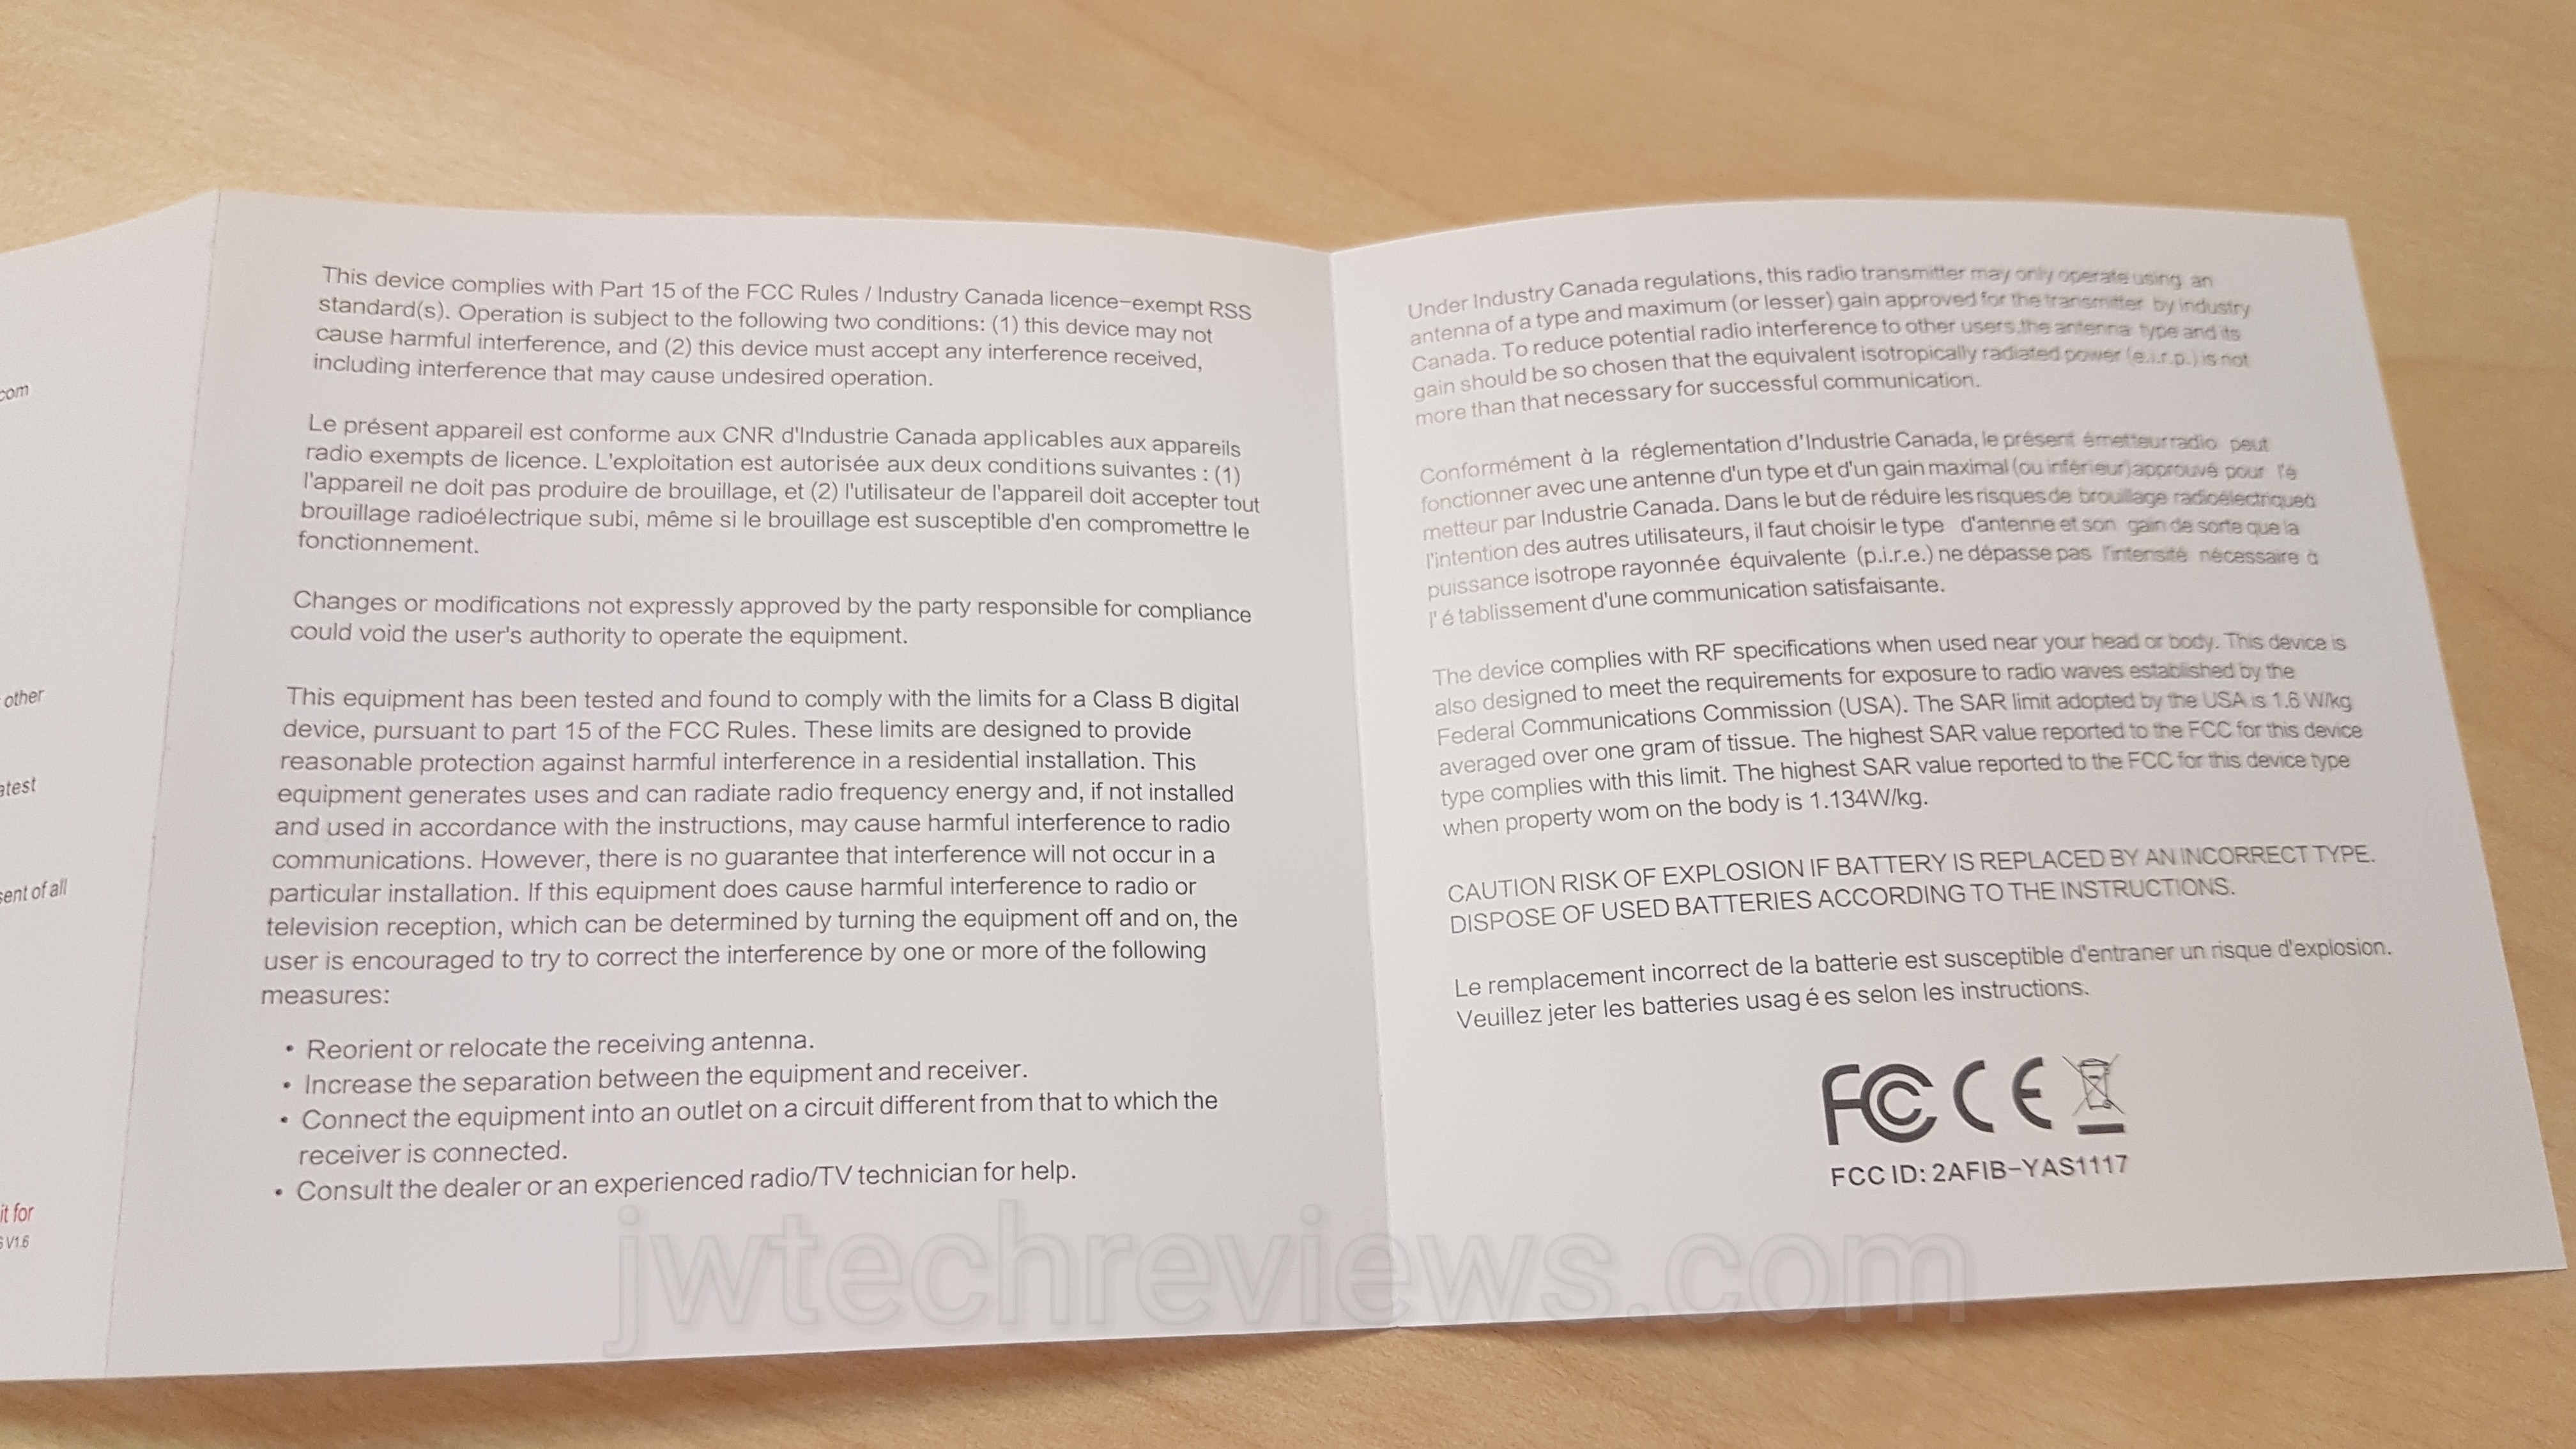 com
other
atest
sent of all
it for
V1.6
This device complies with Part 15 of the FCC Rules / Industry Canada licence-exempt RSS
standard(s). Operation is subject to the following two conditions: (1) this device may not
cause harmful interference, and (2) this device must accept any interference received,
including interference that may cause undesired operation.
Le présent appareil est conforme aux CNR d'Industrie Canada applicables aux appareils
radio exempts de licence. L'exploitation est autorisée aux deux conditions suivantes : (1)
l'appareil ne doit pas produire de brouillage, et (2) l'utilisateur de l'appareil doit accepter tout
brouillage radioélectrique subi, même si le brouillage est susceptible d'en compromettre le
fonctionnement.
Changes or modifications not expressly approved by the party responsible for compliance
could void the user's authority to operate the equipment.
This equipment has been tested and found to comply with the limits for a Class B digital
device, pursuant to part 15 of the FCC Rules. These limits are designed to provide
reasonable protection against harmful interference in a residential installation. This
equipment generates uses and can radiate radio frequency energy and, if not installed
and used in accordance with the instructions, may cause harmful interference to radio
communications. However, there is no guarantee that interference will not occur in a
particular installation. If this equipment does cause harmful interference to radio or
television reception, which can be determined by turning the equipment off and on, the
user is encouraged to try to correct the interference by one or more of the following
measures:
• Reorient or relocate the receiving antenna.
• Increase the separation between the equipment and receiver.
• Connect the equipment into an outlet on a circuit different from that to which the
receiver is connected.
• Consult the dealer or an experienced radio/TV technician for help.
Under Industry Canada regulations, this radio transmitter may only operate using an
antenna of a type and maximum (or lesser) gain approved for the transmitter by industry
Canada. To reduce potential radio interference to other users,the antenna type and its
gain should be so chosen that the equivalent isotropically radiated power (e.i.r.p.) is not
more than that necessary for successful communication.
Conformément à la réglementation d'Industrie Canada, le présent émetteurradio peut
fonctionner avec une antenne d'un type et d'un gain maximal (ou inférieur)approuvé pour l'é
metteur par Industrie Canada. Dans le but de réduire les risques de brouillage radioélectriqueà
l'intention des autres utilisateurs, il faut choisir le type d'antenne et son gain de sorte que la
puissance isotrope rayonnée équivalente (p.i.r.e.) ne dépasse pas l'intensité nécessaire à
l' é tablissement d'une communication satisfaisante.
The device complies with RF specifications when used near your head or body. This device is
also designed to meet the requirements for exposure to radio waves established by the
Federal Communications Commission (USA). The SAR limit adopted by the USA is 1.6 W/kg
averaged over one gram of tissue. The highest SAR value reported to the FCC for this device
type complies with this limit. The highest SAR value reported to the FCC for this device type
when property wom on the body is 1.134W/kg.
CAUTION RISK OF EXPLOSION IF BATTERY IS REPLACED BY AN INCORRECT TYPE.
DISPOSE OF USED BATTERIES ACCORDING TO THE INSTRUCTIONS.
Le remplacement incorrect de la batterie est susceptible d'entraner un risque d'explosion.
Veuillez jeter les batteries usag é es selon les instructions.
FC CE
FCC ID: 2AFIB-YAS1117
jwtechreviews.com